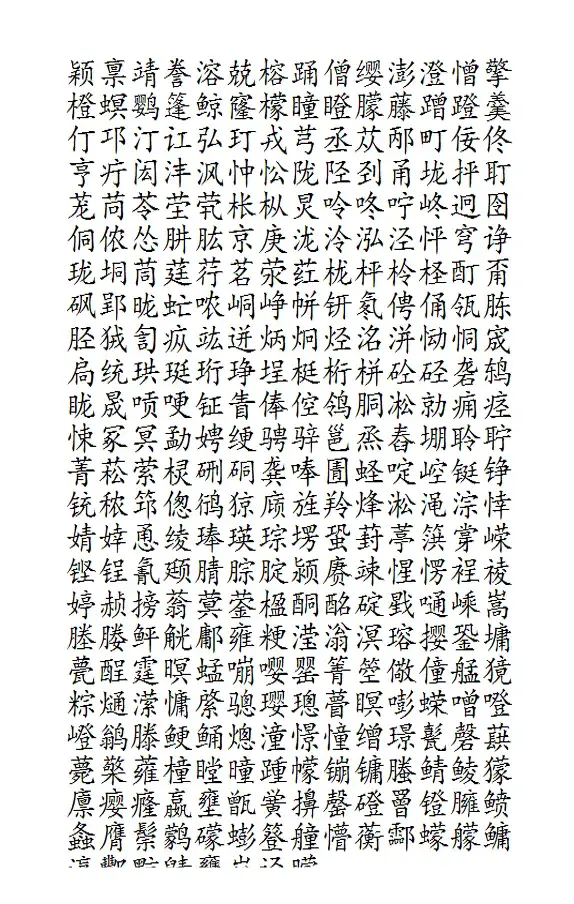 颖禀靖誊溶兢榕踊僧缨澎澄憎擎
橙螟鹦篷鲸窿檬瞳瞪朦藤蹭蹬羹
仃邛汀讧弘玎戎芎丞苁邴町佞佟
亨疔闳沣沨忡忪陇陉刭甬垅抨耵
茏苘苓茔茕枨枞炅呤咚咛峂迥囹
侗侬怂肼肱京庚泷泠泓泾怦穹诤
珑垌茼莛荇茗荥荭栊枰柃柽酊甭
砜郢昽虻哝峒峥帡钘氡俜俑瓴胨
胫狨訇疭竑迸炳炯烃洺洴恸恫宬
扃统珙珽珩琤埕梃桁栟砼硁砻鸫
眬晟唝哽钲眚俸倥鸰胴凇勍痌痉
悚冢冥勐娉绠骋骍邕烝舂堋聆聍
菁菘萦梫硎硐龚唪圊蛏啶崆铤铮
铳秾筇偬鸻猄庼旌羚烽淞渑淙悻
婧婞恿绫琫瑛琮塄蛩葑葶牚嵘
铿锃氰颋腈腙腚颍赓竦惺愣裎祾
婷赪搒蓊蓂蓥楹酮酩碇戥嗵嵊嵩
塍媵鲆觥鄘雍粳滢滃溟瑢撄銎墉
甍酲霆暝蜢嘣嘤罂箐箜儆僮艋獍
粽熥潆慵綮骢璎璁瞢瞑嘭蝾噌噔
嶝鹟滕鲠鲬熜潼憬憧缯璟磬蕻
薨檠蕹橦瞠曈踵幪镚镛螣鲭鲮獴
廪瘿癃嬴壅甑黉擤罄磴罾镫臃
螽膺鬃鹲礞蟛簦艟懵蘅酃蠓艨鳙